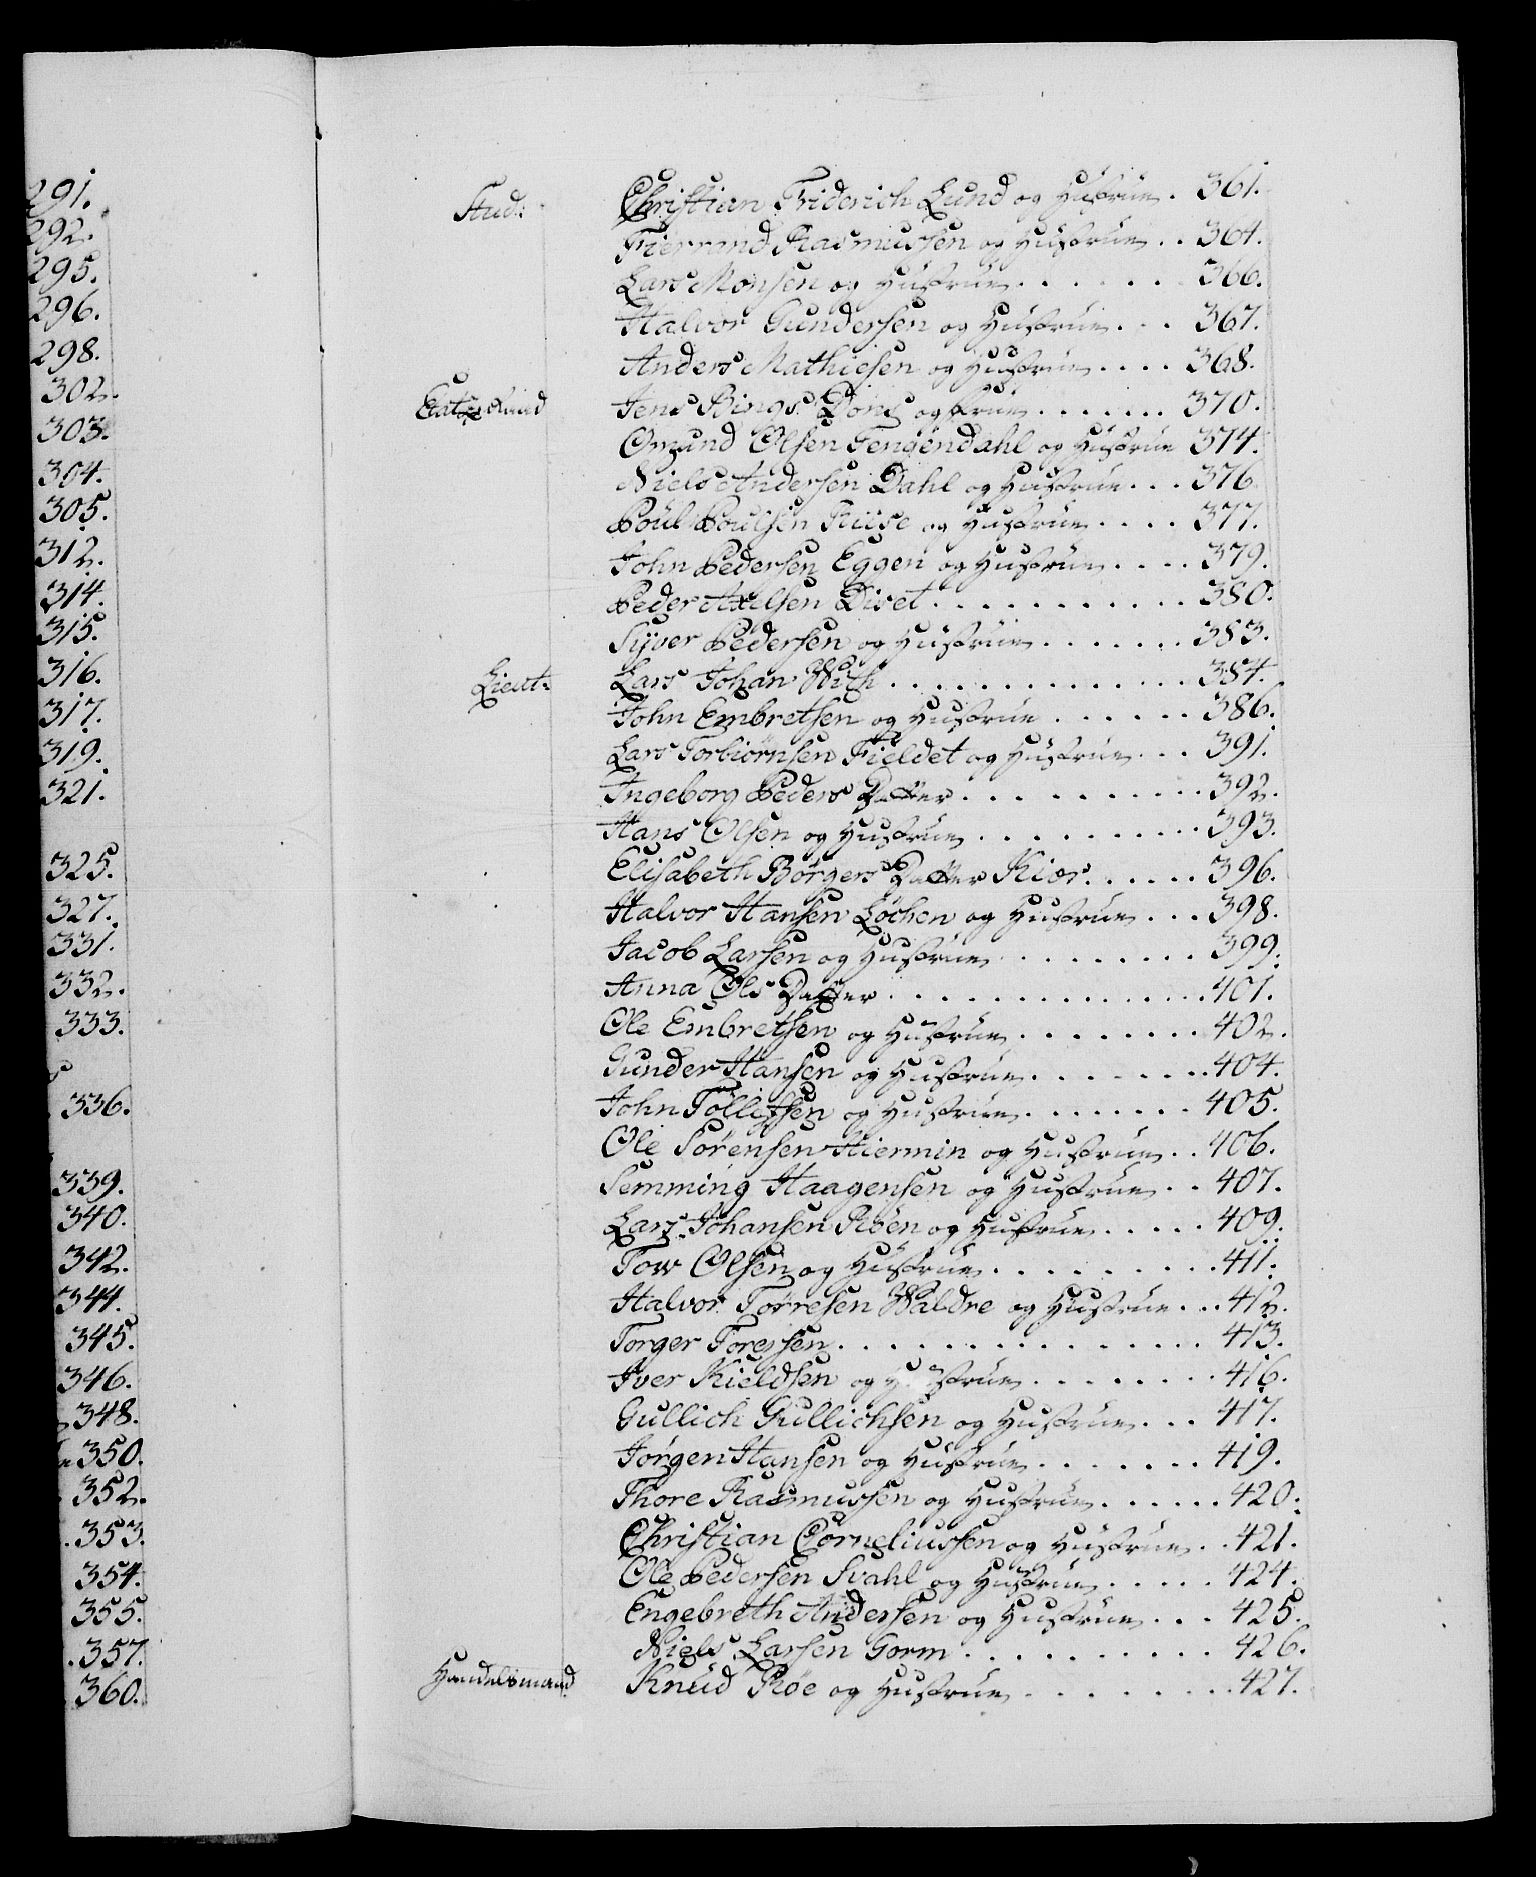 291.
292.
295.
296.
298.
302.
303.
304.
305.
312.
314.
315.
316.
317.
319.
321.
325.
327.
331.
332.
333.
336.
339.
340.
342.
344.
345.
346.
348.
350.
352.
353.
354.
355.
357.
360.
Stud: Christian Friderich Lund og Hustrue . 361.
Fierrand Rasmussen og Hustrue . . 364.
Lars Monsen og Hustrue . . . . . . . 366.
Halvor Gundersen og Hustrue . . . 367.
Anders Mathiesen og Hustrue . . . . 368.
Etatz Raad Jens Bings Dons og Frue . . . . . . . 370.
Omund Olsen Tengendahl og Hustrue 374.
Niels Andersen Dahl og Hustrue . . . 376.
Poul Poulsen Riise og Hustrue . . . . 377.
John Pedersen Eggen og Hustrue . . . . 379.
Peder Axelsen Diset . . . . . . . . . . . 380.
Syver Pedersen og Hustrue . . . . . . . 383.
Lieut: Lars Johan With . . . . . . . . . . . . . 384.
John Embretsen og Hustrue . . . . . . 386.
Lars Torbiørnsen Fieldet og Hustrue . . . 391.
Ingeborg Peders Datter . . . . . . . . . . 392.
Hans Olsen og Hustrue . . . . . . . . . . 393.
Elisabeth Børgers Datter Kiær . . . . . . 396.
Halvor Hansen Løchen og Hustrue . . . 398.
Jacob Larsen og Hustrue . . . . . . . . . 399.
Anna Ols Datter . . . . . . . . . . . . . . 401.
Ole Embretsen og Hustrue . . . . . . . . 402.
Gunder Hansen og Hustrue . . . . . . . 404.
John Tollefsen og Hustrue . . . . . . . . 405.
Ole Sørensen Hiermin og Hustrue . . 406.
Semming Haagensen og Hustrue . . 407.
Lars Johansen Roen og Hustrue . . . . . 409.
Tow Olsen og Hustrue . . . . . . . . . 411.
Halvor Torresen Waldre og Hustrue . . . 412.
Torger Toressen . . . . . . . . . . . . . . . 413.
Iver Kieldsen og Hustrue . . . . . . . . 416.
Gullich Gullichsen og Hustrue . . . 417.
Jørgen Hansen og Hustrue . . . . . . . 419.
Thore Rasmussen og Hustrue . . . . . . 420.
Christian Corneliussen og Hustrue . . 421.
Ole Pedersen Svahl og Hustrue . . . . . 424.
Engebreth Andersen og Hustrue . . . 425.
Niels Larsen Gorm . . . . . . . . . . 426.
Handelsmand Knud Røe og Hustrue . . . . . . . . . 427.